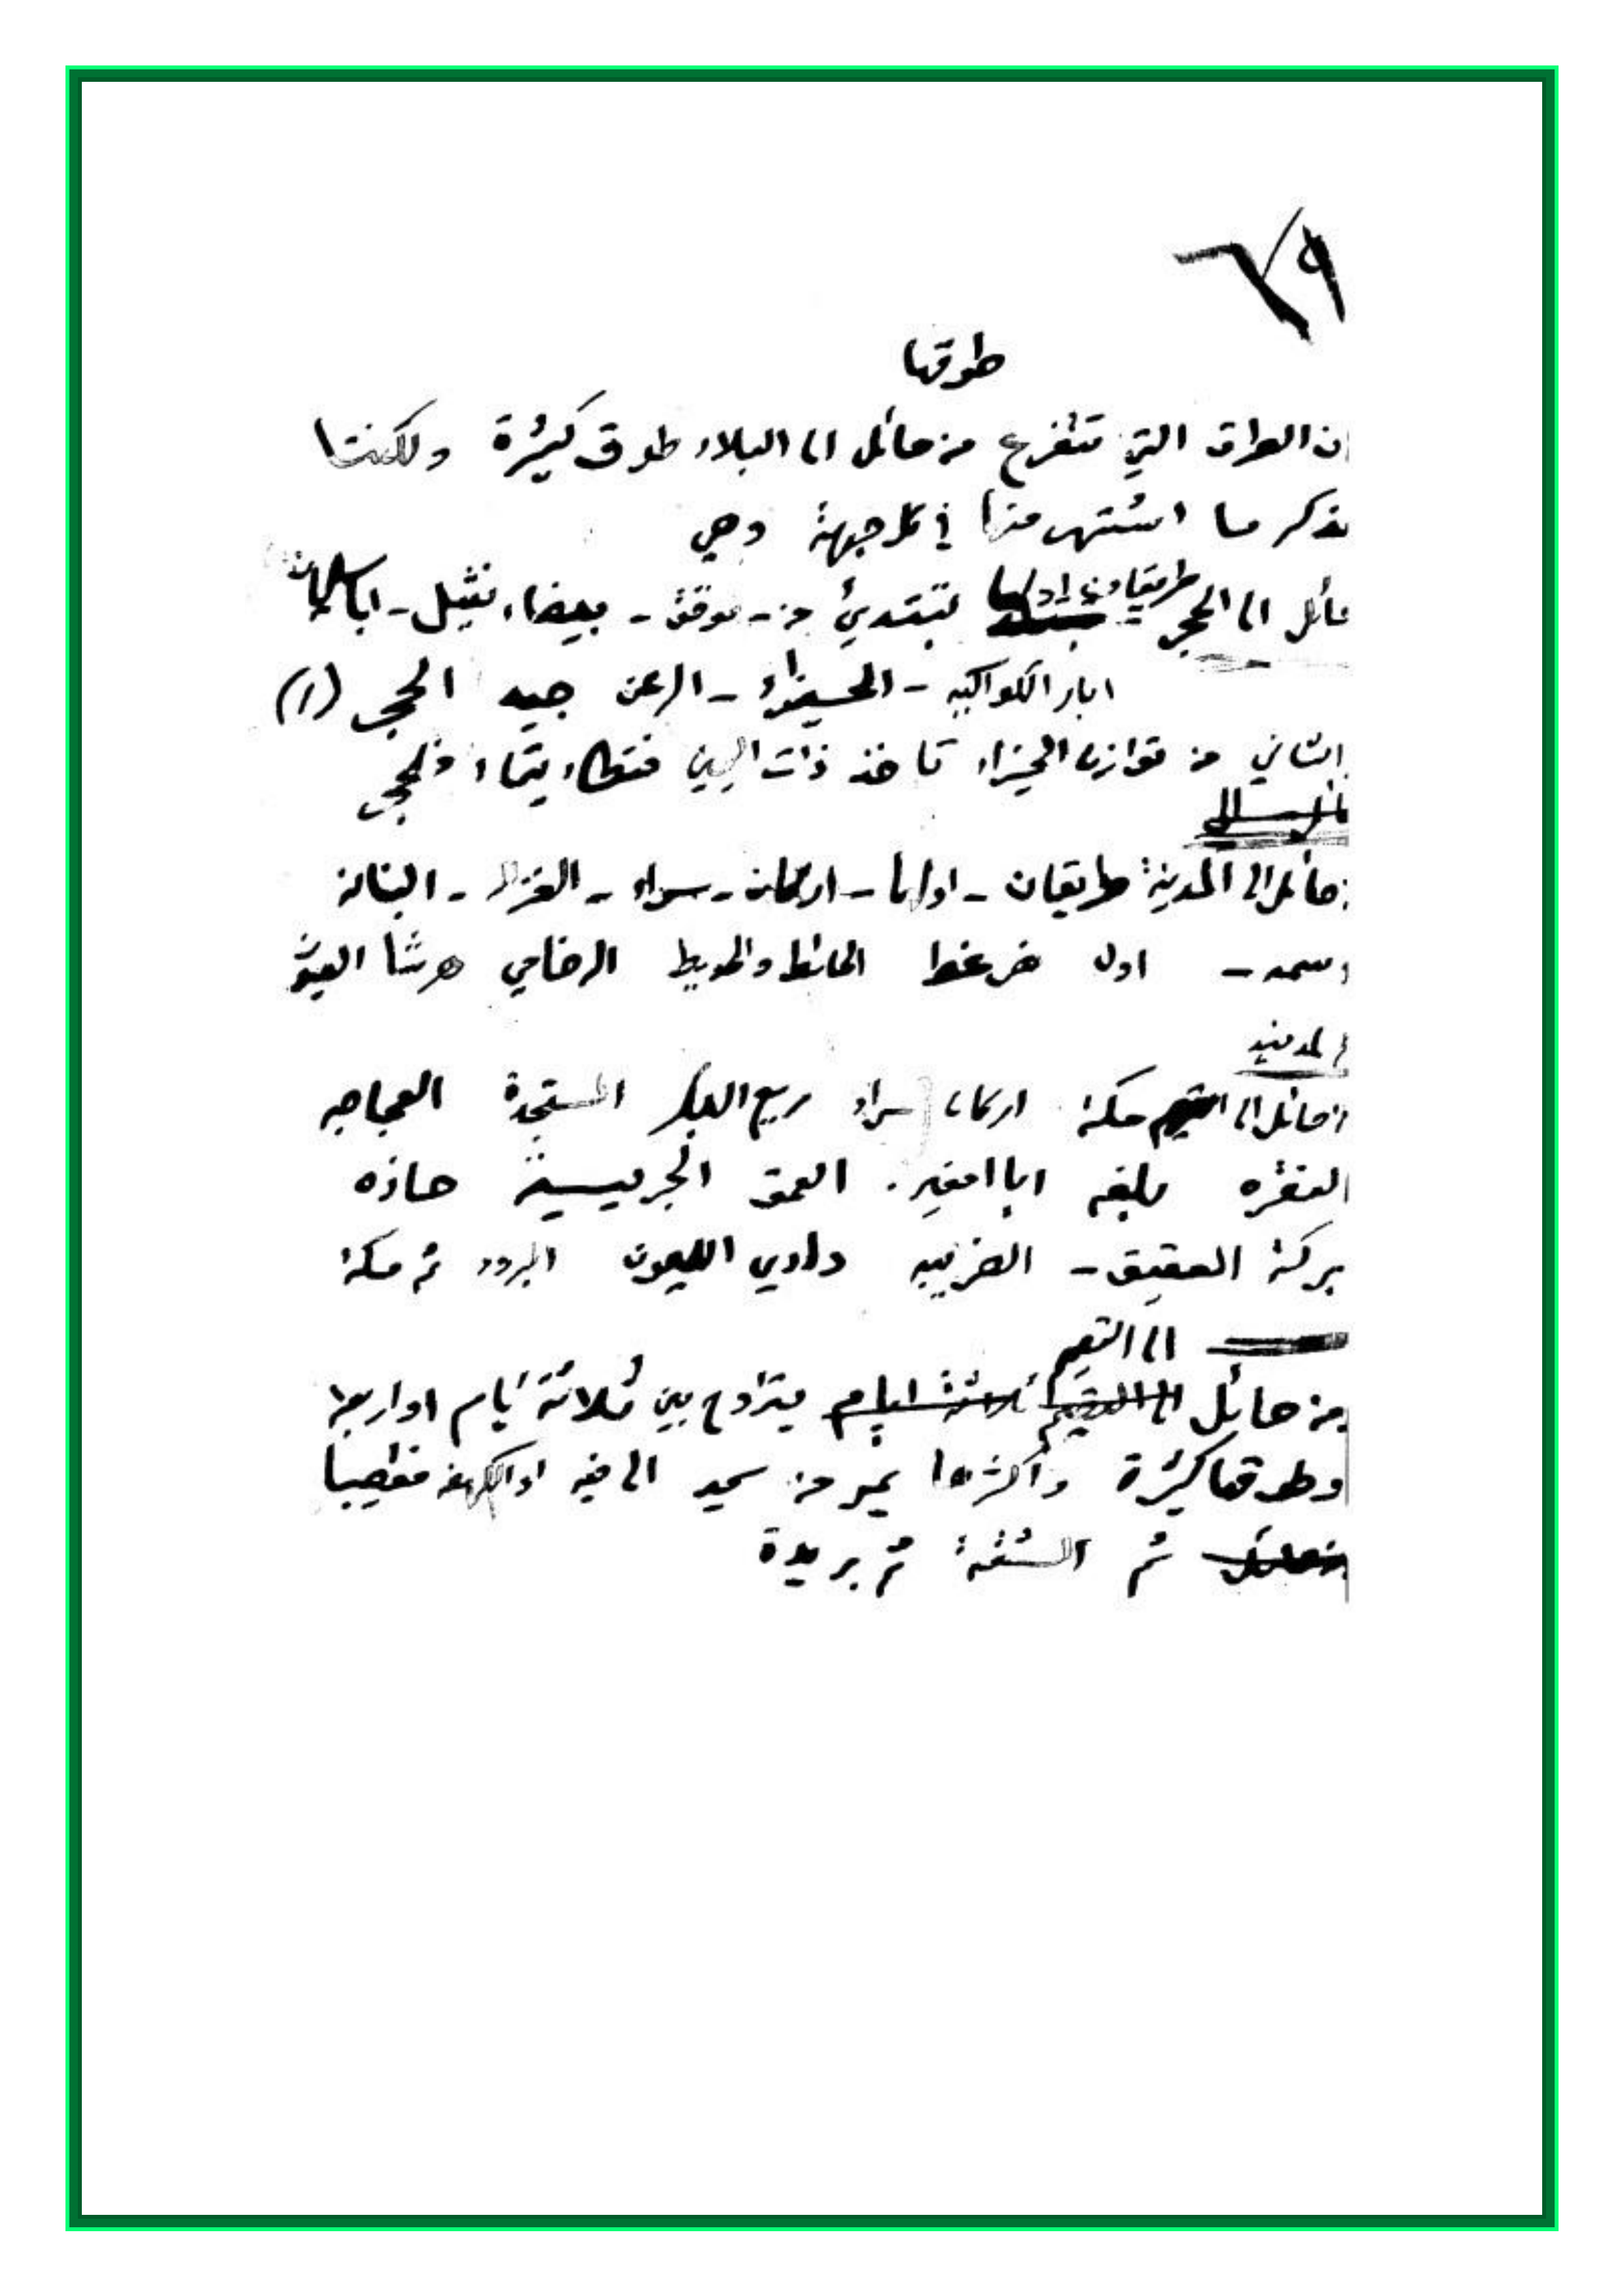 ٦٩
طرقها
ان الطرق التي تتفرع من حائل الى البلاد طرق كثيرة ولكننا
نذكر ما اشتهر منها في كل جهة وهي
حائل الى الحجر طريقان اولها تبتدئ من - موقق - بيضاء نثيل - ابا
ابار الكواكبيه - الحيزاء - الرعن جيده الحجر (١)
الثاني من الحيزاء تا خذ ذات اليمين تيماء فالحجر
من حائل الى المدينة طريقان - اولها - اركان - سراء - الغزاله - البنانه
اول ضرغط الحائط والحويط الرضامي هرشا
المدينه
من حائل الى مكة اركان سراء ريع البكر المستجدة العجاجه
النقره بلغه ابا امغير. العمق الجريسية حاذه
بركة العقيق - الضريبه وادي الليمون البرود ثم مكة
الى القصيم
من حائل يتراوح بين ثلاثة ايام او اربعة
وطرقها كثيرة واكثرها يمر من الى فيد او الكهفه فقصيبا
ثم الشقة ثم بريدة